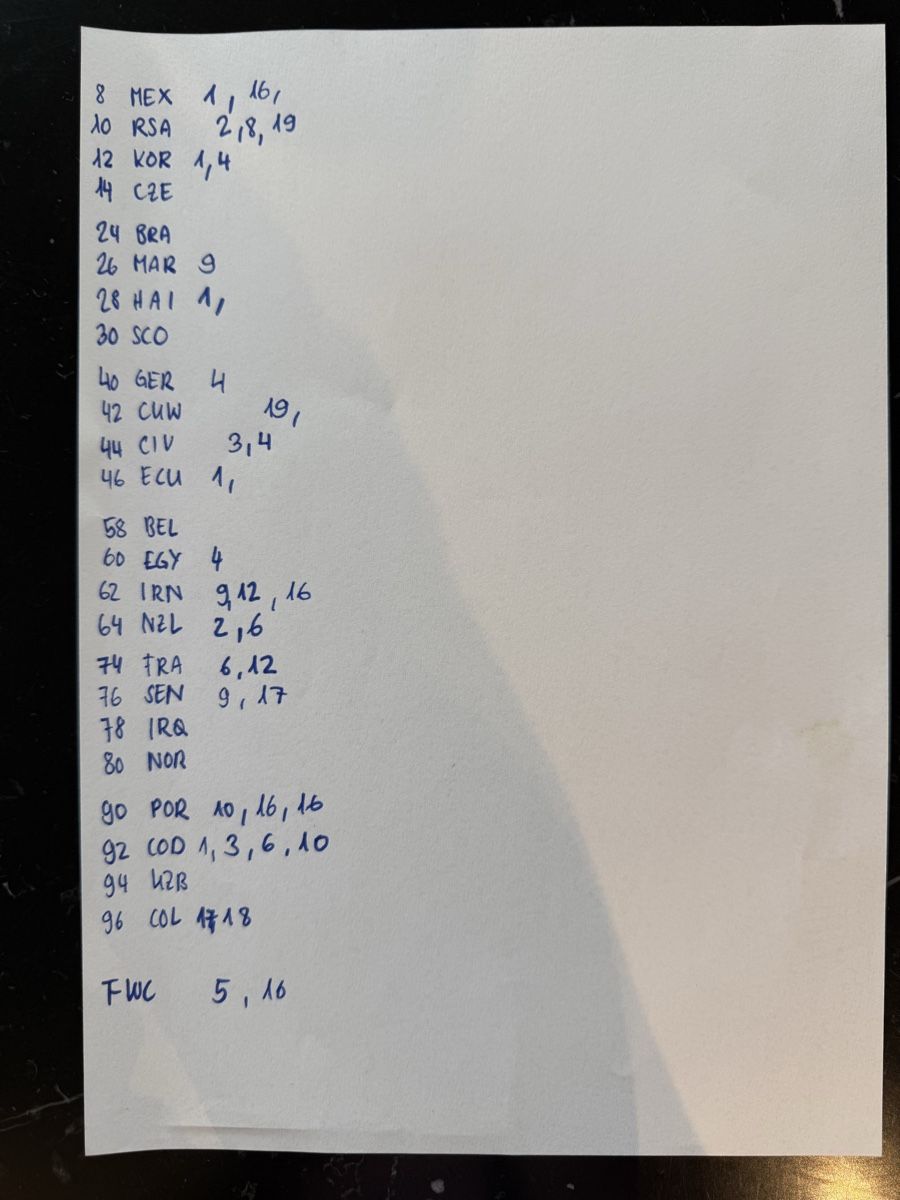 8 MEX 1, 16,
10 RSA 2,8,19
12 KOR 1,4
14 CZE
24 BRA
26 MAR 9
28 HAI 1,
30 SCO
40 GER 4
42 CUW 19,
44 CIV 3,4
46 ECU 1,
58 BEL
60 EGY 4
62 IRN 9,12, 16
64 NZL 2,6
74 FRA 6,12
76 SEN 9, 17
78 IRQ
80 NOR
90 POR 10, 16, 16
92 COD 1, 3, 6, 10
94 UZB
96 COL 17,18
FWC 5, 16